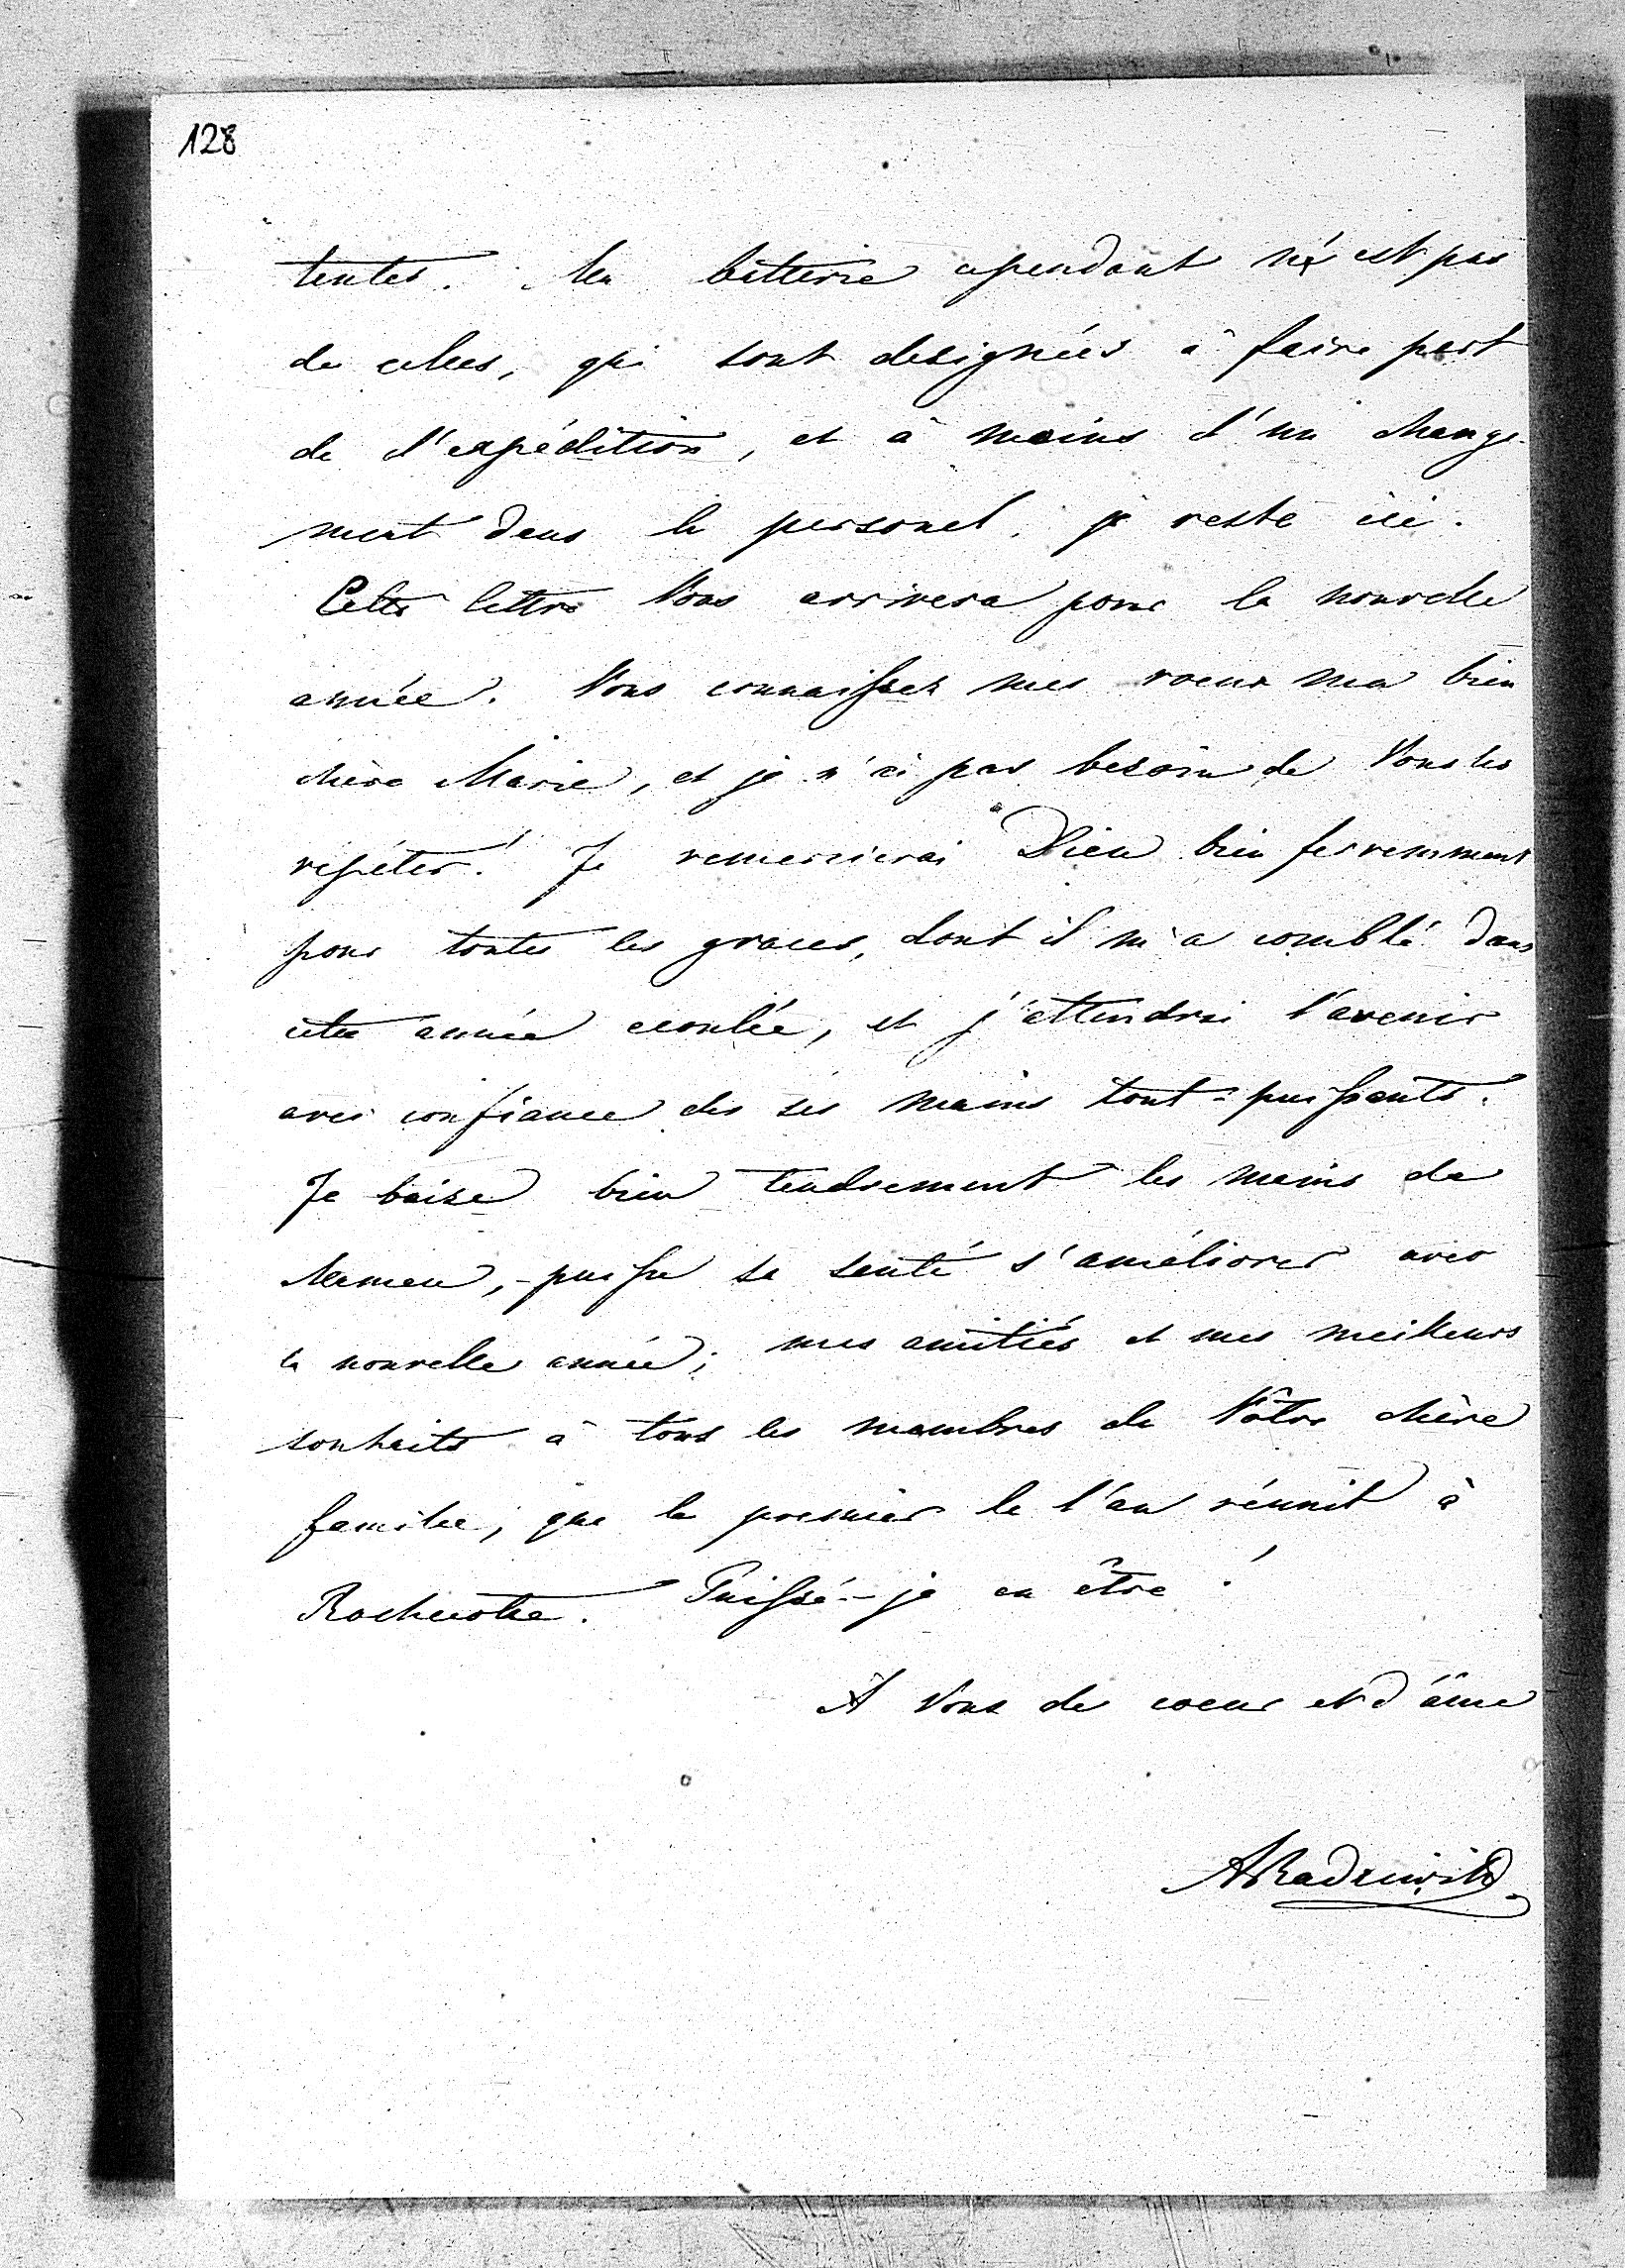 128
tentes. Ma batterie cependant n'est pas
de celles, qui sont designées à faire part
de l'expédition, et à moins d'un change-
ment dans le personel, je reste ici.
Cette lettre Vous arrivera pour la nouvelle
année. Vous connaissez mes voeux ma bien
chère Marie, et je n'ai pas besoin de Vous les
repéter! Je remercierai Dieu bien ferremment
pour toutes les graces, dont il m'a comblé dans
cette année ecoulée, et j'attendrai l'avenir
avec confiance de ses mains tout-puissants.
Je baise bien tendrement les mains de
Maman, - puisse sa santé s'améliorer avec
la nouvelle année; mes amitiés et mes meilleurs
souhaits à tous les membres de Vôtre chère
famille, que le premier de l'an réunit à
Rochecotte. Puissé-je en être!
A Vous de coeur et d'âme
ARadziwiłł